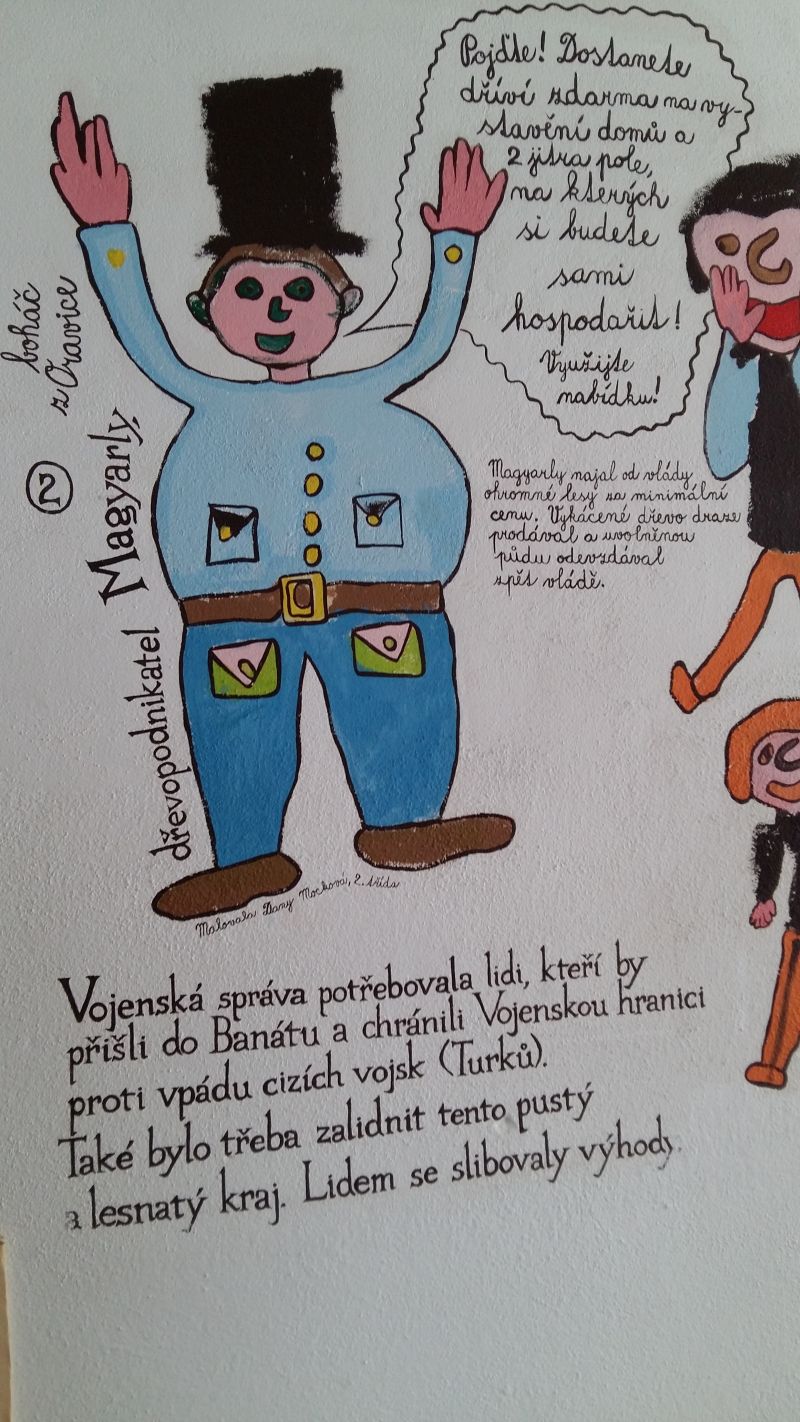 Pojďte! Dostanete
dříví zdarma na vy-
stavění domů a
2 jitra pole,
na kterých
si budete
sami
hospodařit!
Využijte
nabídku!
boháč
z Oravice
2
dřevopodnikatel Magyarly
Magyarly najal od vlády
ohromné lesy za minimální
cenu. Vykácené dřevo draze
prodával a uvolněnou
půdu odevzdával
zpět vládě.
Malovala Dany Mocková, 2. třída
Vojenská správa potřebovala lidi, kteří by
přišli do Banátu a chránili Vojenskou hranici
proti vpádu cizích vojsk (Turků).
Také bylo třeba zalidnit tento pustý
a lesnatý kraj. Lidem se slibovaly výhody.